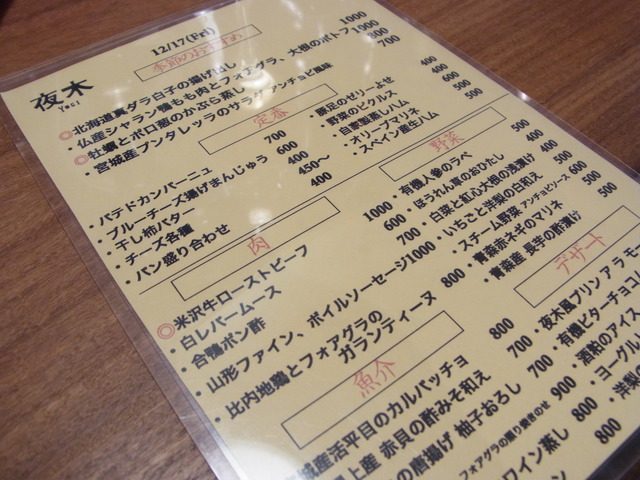 夜木
Yagi
12/17(Fri)
季節のおすすめ
◎北海道真ダラ白子の揚げ出し 1000
・仏産シャラン鴨もも肉とフォアグラ、大根のポトフ 1000
◎牡蠣とポロ葱のかぶら蒸し 800
・宮城産プンタレッラのサラダ アンチョビ風味 700
定番
・パテドカンパーニュ 700
・ブルーチーズ揚げまんじゅう 600
・干し柿バター 400
・チーズ各種 450〜
・パン盛り合わせ 400
・豚足のゼリーよせ 400
・野菜のピクルス 400
・自家製蒸しハム 600
・オリーブマリネ 500
・スペイン産生ハム
肉
◎米沢牛ローストビーフ 1000
・白レバームース 600
・合鴨ポン酢 700
・山形ファイン、ボイルソーセージ 1000
・比内地鶏とフォアグラの
ガランティーヌ 800
野菜
・有機人参のラペ 500
・ほうれん草のおひたし 400
・白菜と紅心大根の浅漬け 400
・いちごと洋梨の白和え 500
・スチーム野菜 アンチョビソース 600
・青森赤カブのマリネ 500
・青森産 長芋の酢漬け 500
魚介
城産活平目のカルパッチョ 800
上産 赤貝の酢みそ和え 700
の唐揚げ 柚子おろし 700
フォアグラの照り焼きのせ 900
ワイン蒸し 800
ン 800
デザート
・夜木風プリン アラモー
・有機ビターチョコ
・酒粕のアイス
・ヨーグル
・洋梨の